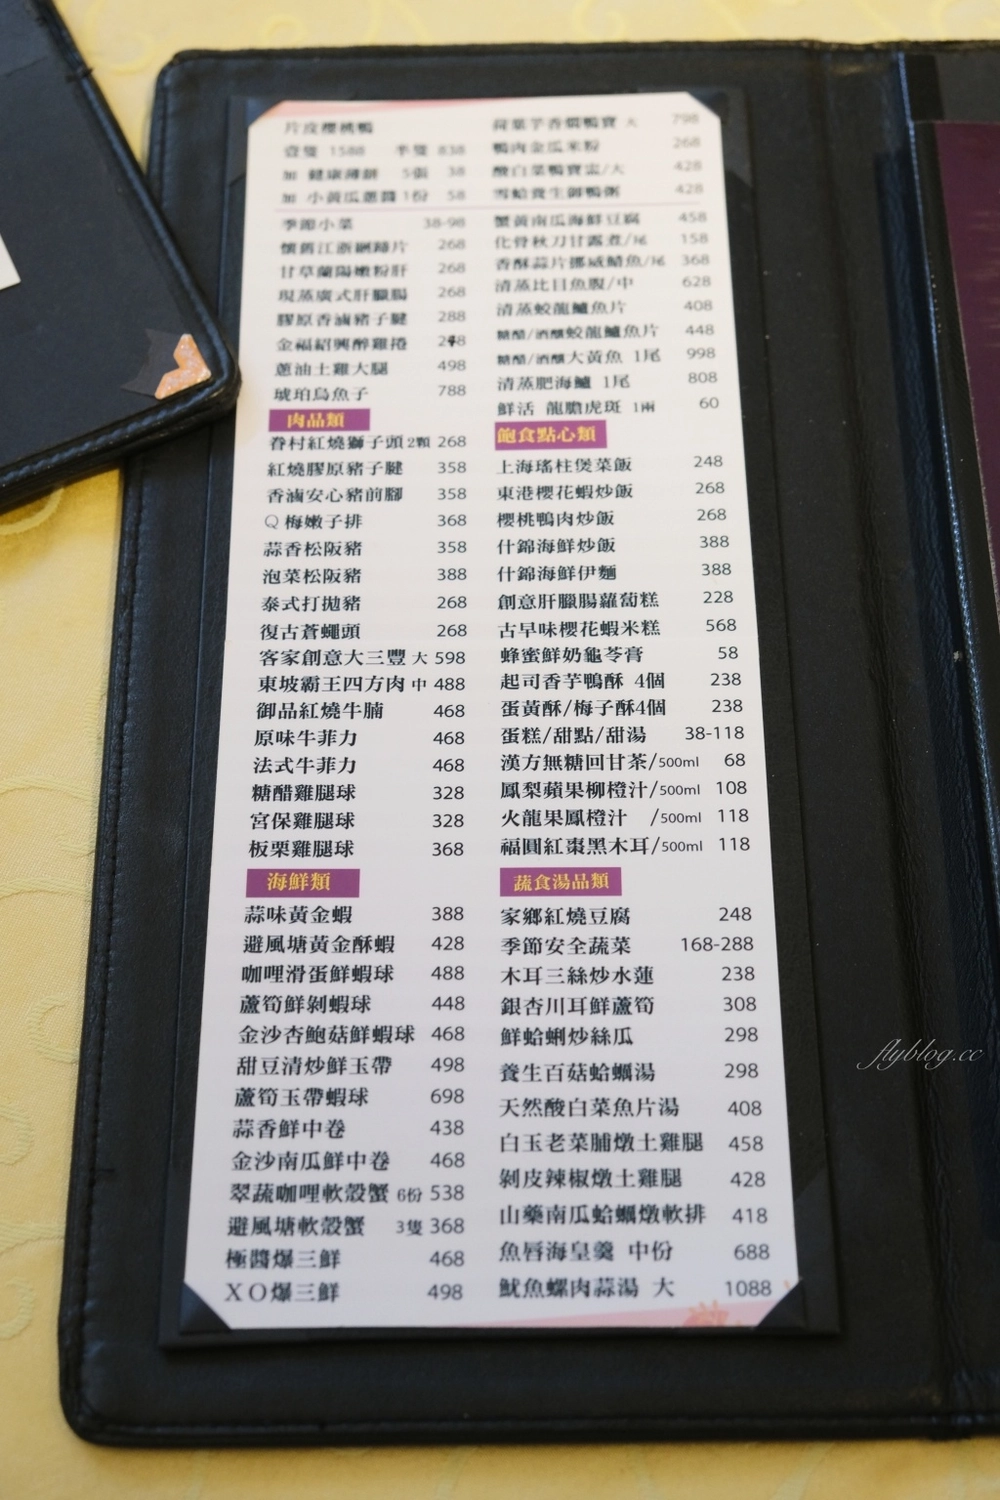 片皮櫻桃鴨
壹隻 1588 半隻 838
加 健康薄餅 5張 38
加 小黃瓜蔥醬 1份 58
季節小菜 38-98
懷舊江浙鎮蹄片 268
甘草蘭陽嫩粉肝 268
現蒸廣式肝臘腸 268
膠原香滷豬子腱 288
金福紹興醉雞捲
蔥油土雞大腿 498
琥珀烏魚子 788
肉品類
眷村紅燒獅子頭 2顆 268
紅燒膠原豬子腱 358
香滷安心豬前腳 358
Q梅嫩子排 368
蒜香松阪豬 358
泡菜松阪豬 388
泰式打拋豬 268
復古蒼蠅頭 268
客家創意大三豐 大 598
東坡霸王四方肉 中 488
御品紅燒牛腩 468
原味牛菲力 468
法式牛菲力 468
糖醋雞腿球 328
宮保雞腿球 328
板栗雞腿球 368
海鮮類
蒜味黃金蝦 388
避風塘黃金酥蝦 428
咖哩滑蛋鮮蝦球 488
蘆筍鮮剝蝦球 448
金沙杏鮑菇鮮蝦球 468
甜豆清炒鮮玉帶 498
蘆筍玉帶蝦球 698
蒜香鮮中卷 438
金沙南瓜鮮中卷 468
翠蔬咖哩軟殼蟹 6份 538
避風塘軟殼蟹 3隻 368
極醬爆三鮮 468
XO爆三鮮 498
荷葉芋香燜鴨寶 大 798
鴨肉金瓜米粉 268
酸白菜鴨寶盅/大 428
雪蛤養生御鴨粥 428
蟹黃南瓜海鮮豆腐 458
化骨秋刀甘露煮/尾 158
香酥蒜片挪威鯖魚/尾 368
清蒸比目魚腹/中 628
清蒸蛟龍鱸魚片 408
糖醋/酒釀蛟龍鱸魚片 448
糖醋/酒釀大黃魚 1尾 998
清蒸肥海鱸 1尾 808
鮮活 龍膽虎斑 1兩 60
飽食點心類
上海瑤柱煲菜飯 248
東港櫻花蝦炒飯 268
櫻桃鴨肉炒飯 268
什錦海鮮炒飯 388
什錦海鮮伊麵 388
創意肝臘腸蘿蔔糕 228
古早味櫻花蝦米糕 568
蜂蜜鮮奶龜苓膏 58
起司香芋鴨酥 4個 238
蛋黃酥/梅子酥4個 238
蛋糕/甜點/甜湯 38-118
漢方無糖回甘茶/500ml 68
鳳梨蘋果柳橙汁/500ml 108
火龍果鳳橙汁 /500ml 118
福圓紅棗黑木耳/500ml 118
蔬食湯品類
家鄉紅燒豆腐 248
季節安全蔬菜 168-288
木耳三絲炒水蓮 238
銀杏川耳鮮蘆筍 308
鮮蛤蜊炒絲瓜 298
養生百菇蛤蠣湯 298
天然酸白菜魚片湯 408
白玉老菜脯燉土雞腿 458
剝皮辣椒燉土雞腿 428
山藥南瓜蛤蠣燉軟排 418
魚唇海皇羹 中份 688
魷魚螺肉蒜湯 大 1088
flyblog.cc